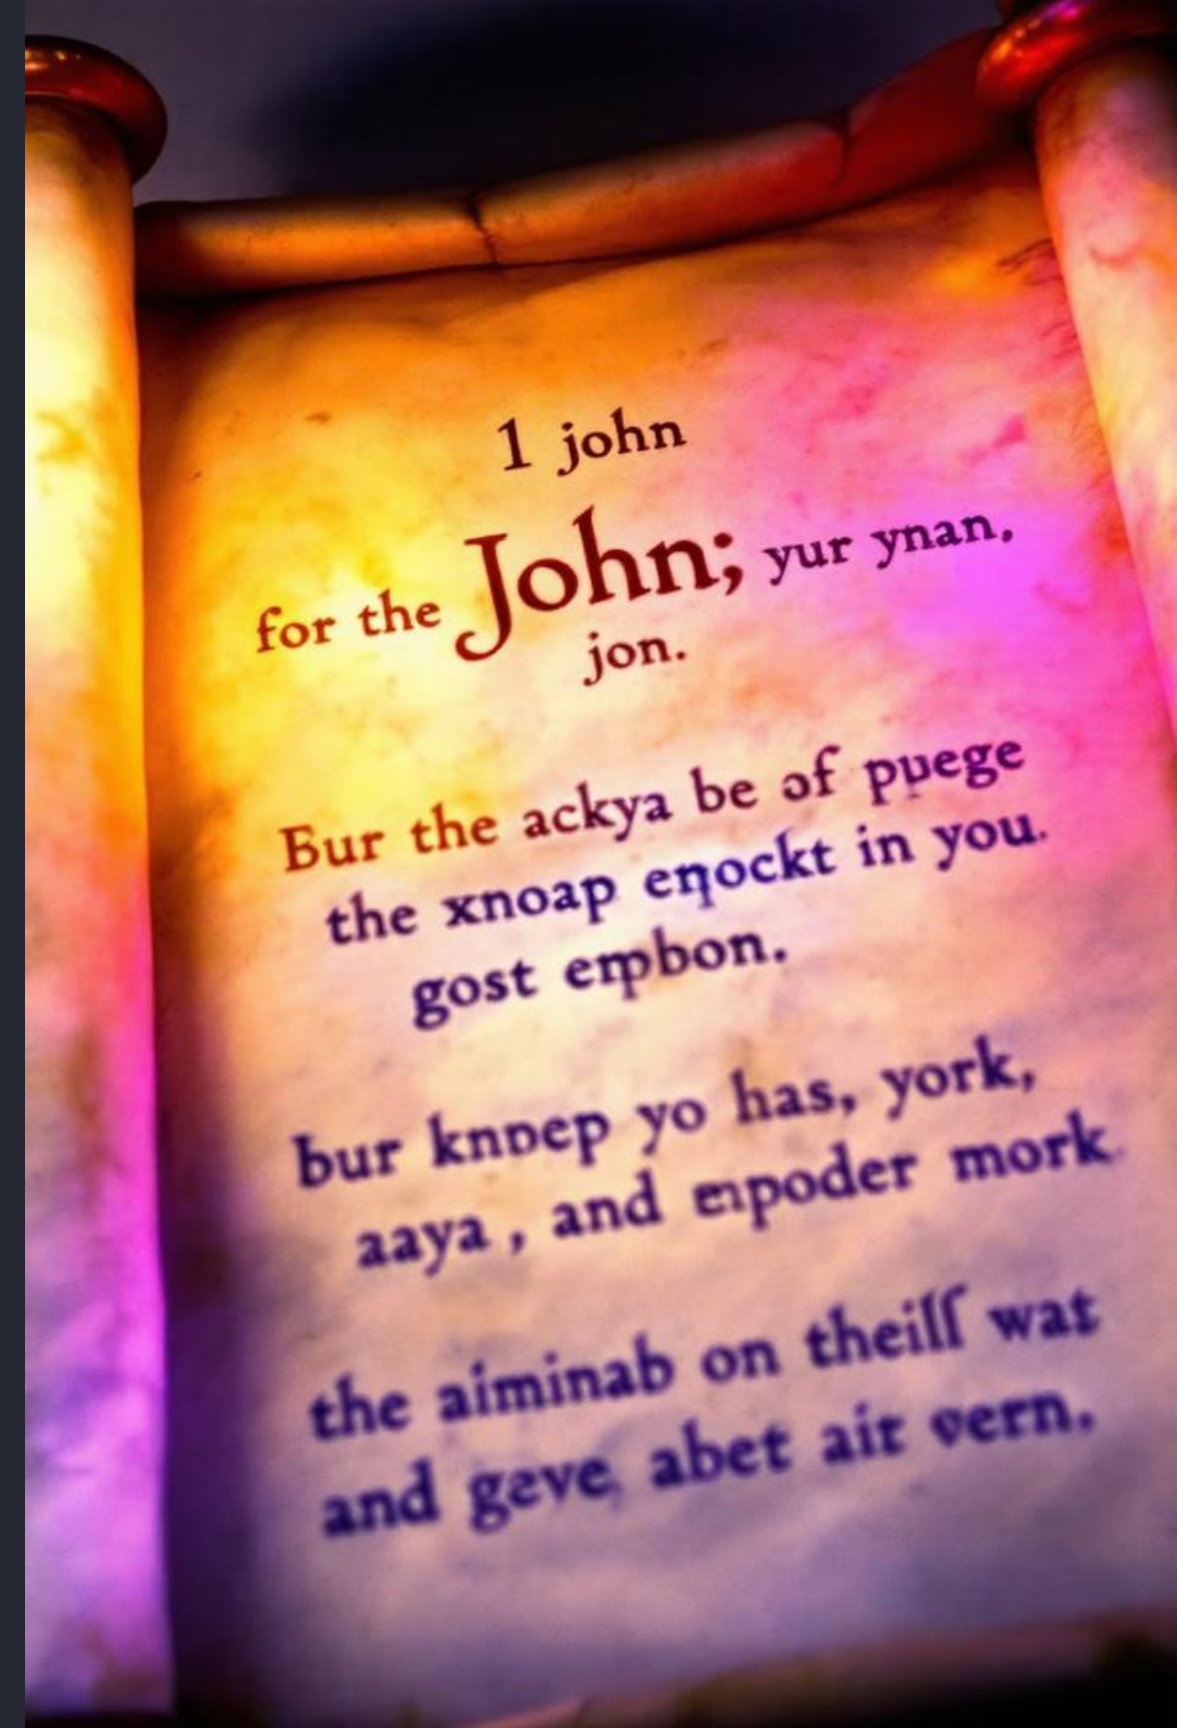 1 john
for the John; yur ynan,
jon.
Bur the ackya be of puege
the xnoap enockt in you.
gost embon.
bur knnep yo has, york,
aaya, and eipoder mork.
the aiminab on theilf wat
and geve, abet air vern.